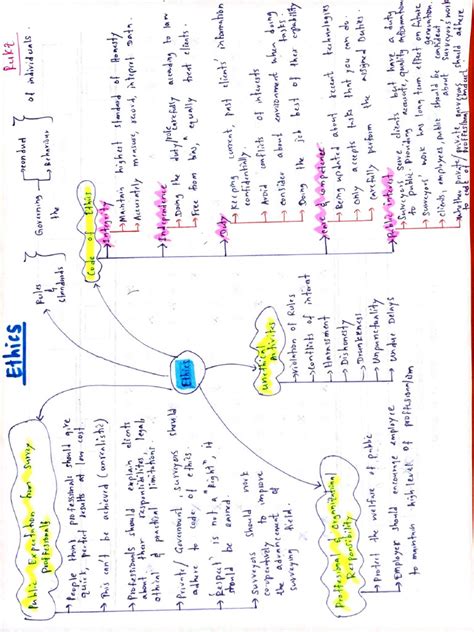 Ethics
Rules
&
standards
Governing
the
conduct
Behaviour
of individuals.
Ethics
Code of Ethics
Integrity
Maintain highest standard of Honesty
Accurately measure, record, interpret data.
Independence
Doing the duty/role carefully according to law
Free from bias, equally treat clients.
Duty
Keeping current, past clients' information
confidentially.
Avoid conflicts of interests
consider about environment when doing
tasks.
Doing the job best of their capability
Care & competence
Being updated about recent technologies
Only accepts tasks that you can do.
carefully perform the assigned Duties.
Public interest
Surveyors serve clients but have a duty
to public. Providing accurate, quality information
Surveyors' work has long term effect on future
generation.
clients, employees, public should be confident
about surveyors work
Whether private/private, surveyors should adhere
to code of proffessional conduct.
Unethical
Activities
Violation of Rules
Conflicts of interest
Harassment
Dishonesty
Drunkeness
Unpunctuality
Undue Delays
Public Expectation from survey
Professionals
People think professionals should give
quick, perfect results at low cost
This can't be achieved (unrealistic)
Professionals should explain clients
about their responsibilities, legal
ethical & practical limitations?
Private/Government surveyors should
adhere to code of ethics.
'Respect' is not a "Right", it
should be earned.
Surveyors should work
cooperatively to improve
the advancement of
surveying field.
Proffessional & organizational
Responsibility
Protect the welfare of public
Employer should encourage employee
to maintain high level of professionalism